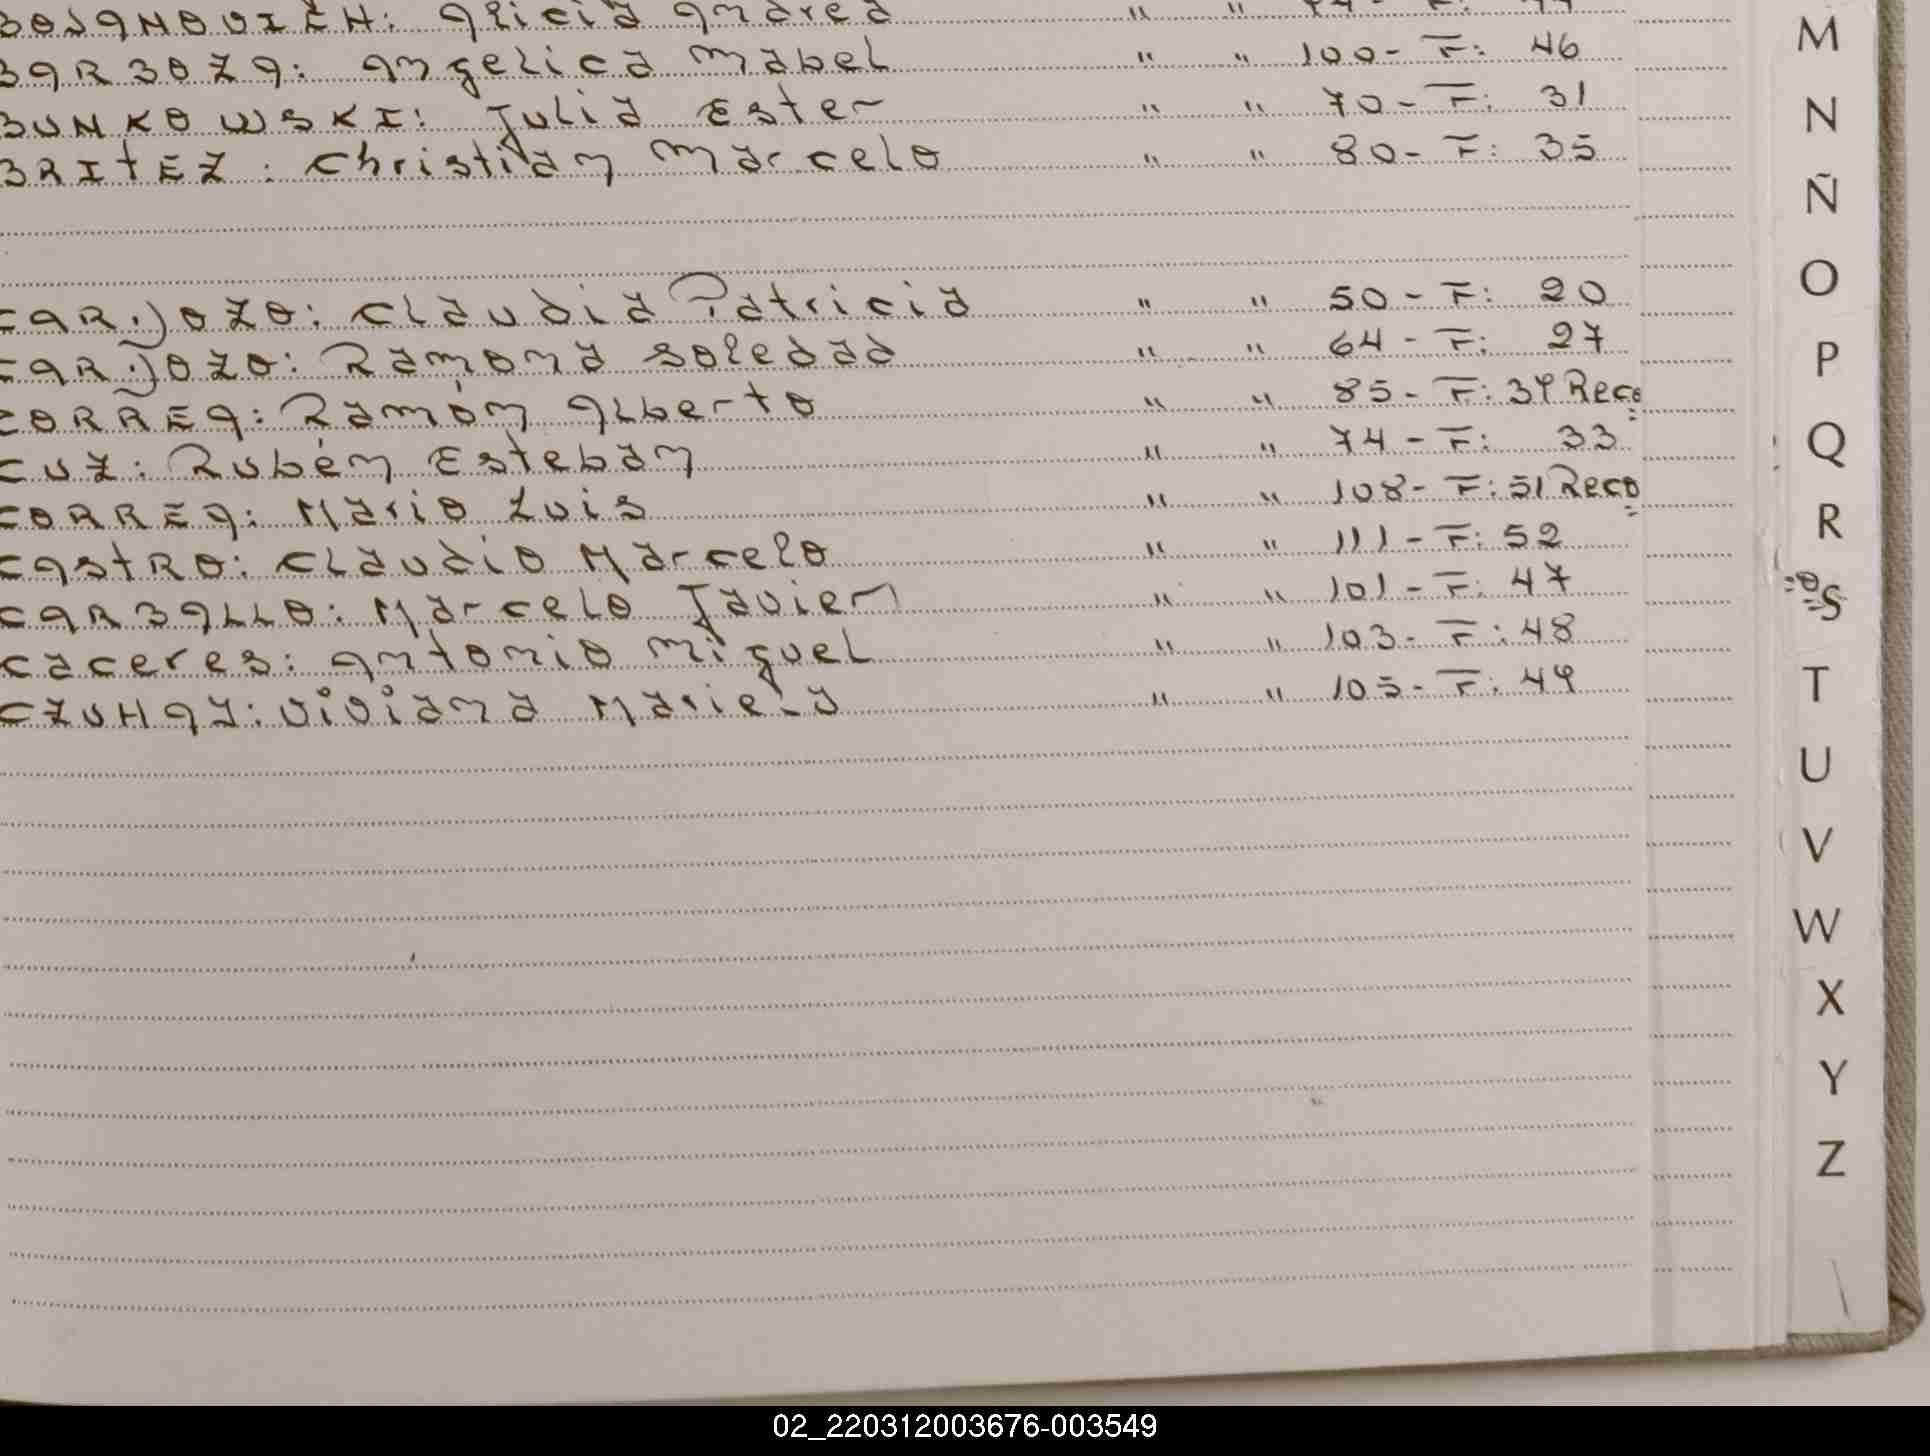 BOJANOVICH: Alicia Andrea " "
BARBOZA: Angelica Mabel " " 100- F: 46
BUNKOWSKI: Julia Ester " " 70- F: 31
BRITEZ: Christian Marcelo " " 80- F: 35
CARDOZO: Claudia Patricia " " 50- F: 20
CARDOZO: Ramona Soledad " " 64- F: 27
CORREA: Ramón Alberto " " 85- F: 39 Reco
CUZ: Rubén Esteban " " 74- F: 33
CORREA: Mario Luis " " 108- F: 51 Reco
CASTRO: Claudio Marcelo " " 111- F: 52
CARBALLO: Marcelo Javier " " 101- F: 47
Caceres: Antonio Miguel " " 103- F: 48
CZUHAJ: Viviana Mariela " " 105- F: 49
M
N
Ñ
O
P
Q
R
S
T
U
V
W
X
Y
Z
02_220312003676-003549